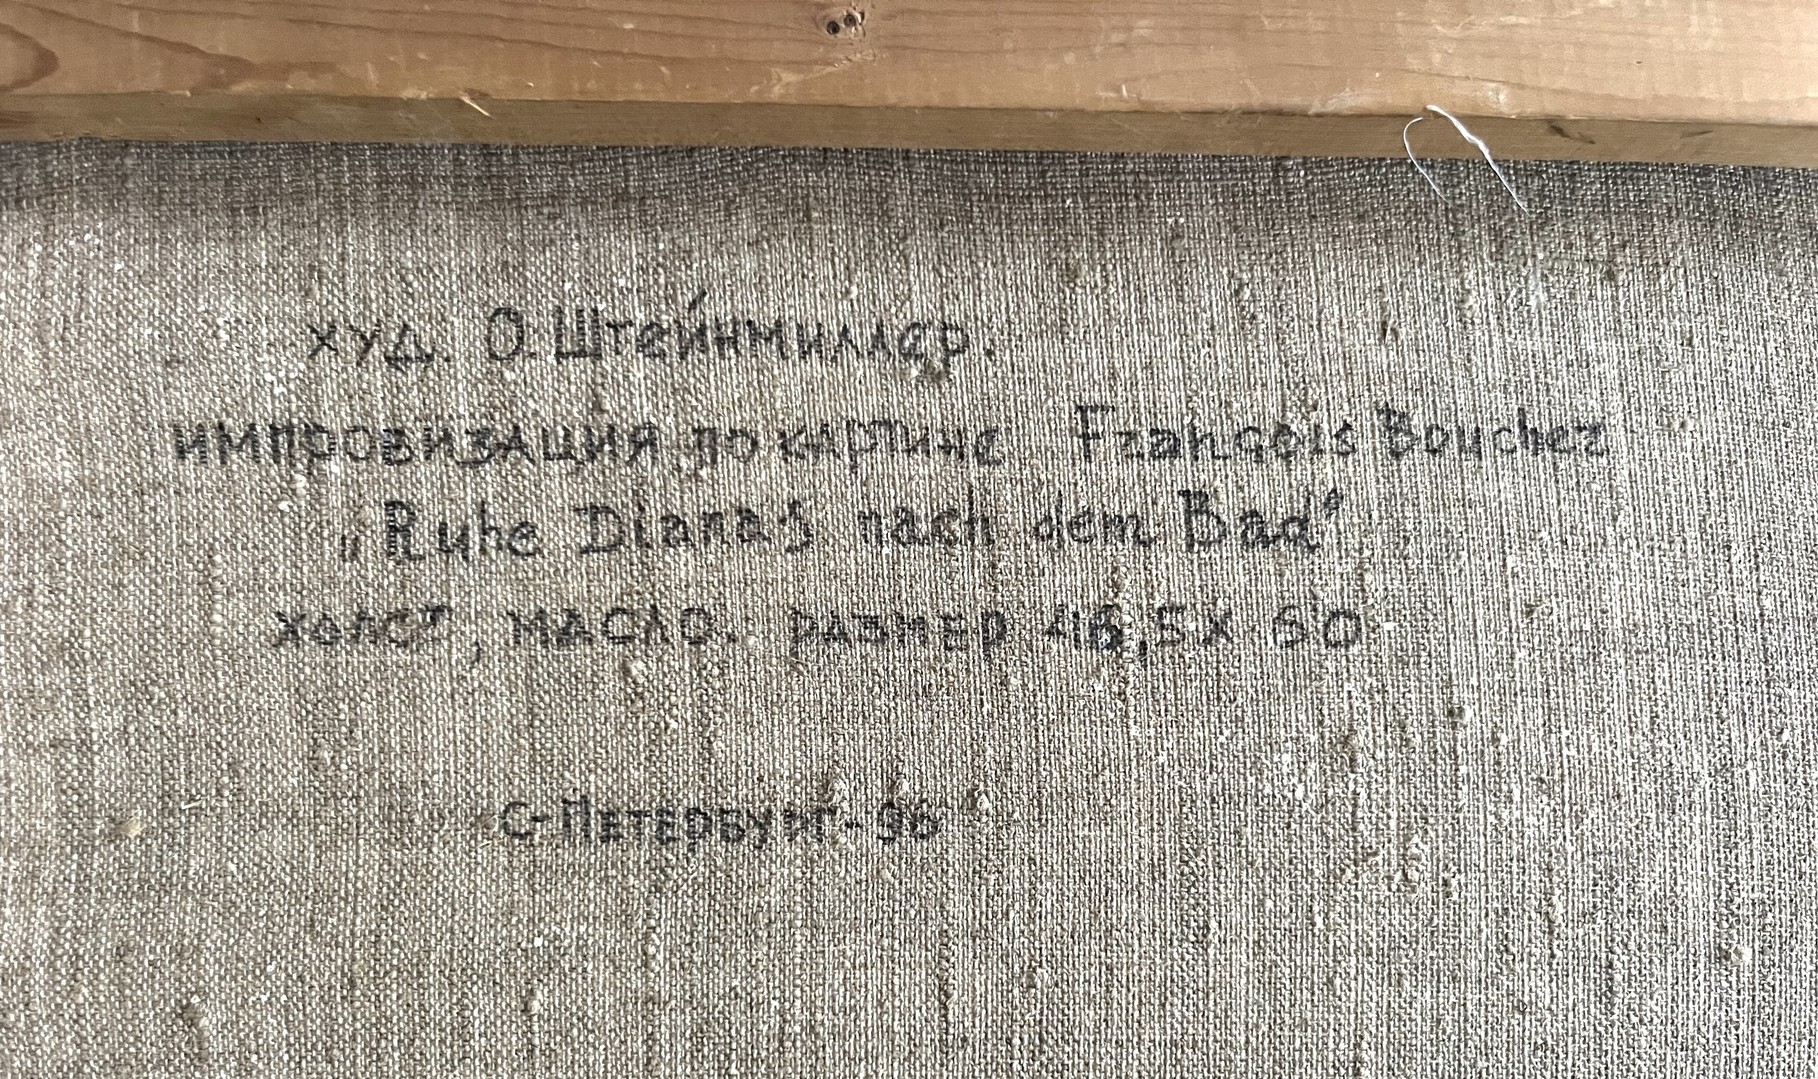 худ. О. Штейнмиллер.
импровизация по картине François Boucher
„Ruhe Dianas nach dem Bad“
холст, масло. размер 46,5 х 60
С-Петербург-96